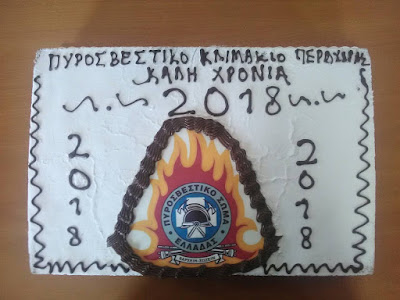 ΠΥΡΟΣΒΕΣΤΙΚΟ ΚΛΙΜΑΚΙΟ ΠΕΡΑΧΩΡΑΣ
ΚΑΛΗ ΧΡΟΝΙΑ
2018
2018
2018
ΠΥΡΟΣΒΕΣΤΙΚΟ ΣΩΜΑ
ΕΛΛΑΔΑΣ